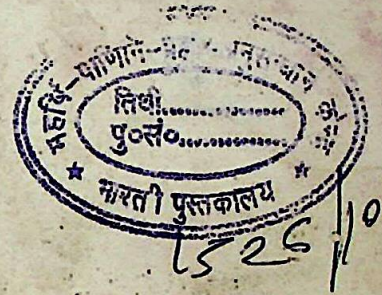 महर्षि-पाणिनि-
तिथी..................
पु०सं०..................
★ भारती पुस्तकालय ★
1526/10